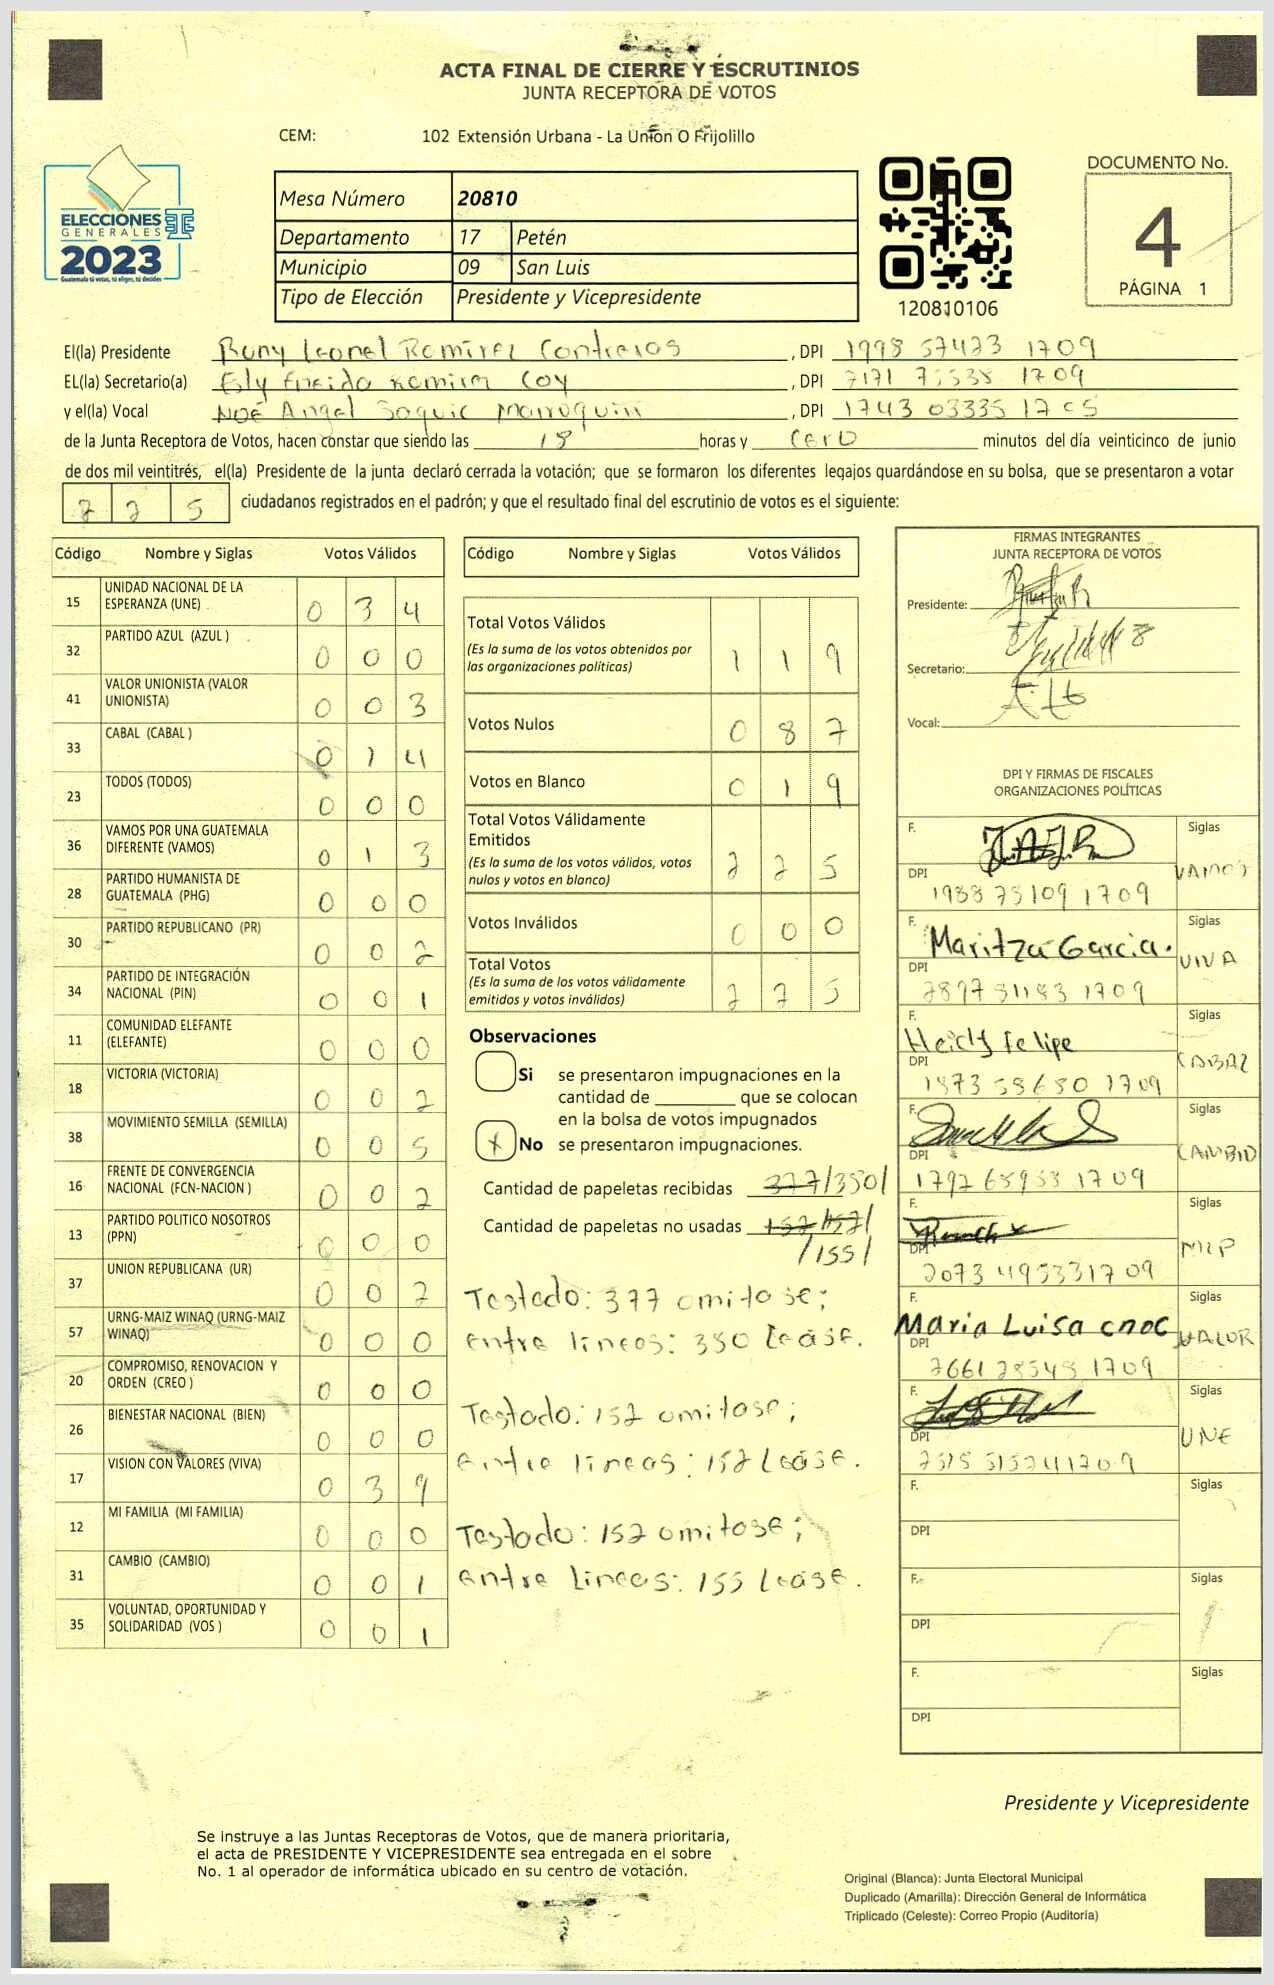 ACTA FINAL DE CIERRE Y ESCRUTINIOS
JUNTA RECEPTORA DE VOTOS
CEM: 102 Extensión Urbana - La Unión O Frijolillo
ELECCIONES
GENERALES
2023
Guatemala tú votas, tú eliges, tú decides
Mesa Número 20810
Departamento 17 Petén
Municipio 09 San Luis
Tipo de Elección Presidente y Vicepresidente
120810106
DOCUMENTO No.
4
PÁGINA 1
El(la) Presidente Rony Leonel Ramirez Contreras, DPI 1998 57473 1709
EL(la) Secretario(a) Ramirez Coy, DPI 1709
y el(la) Vocal Noé Angel Marroquin, DPI 1743 03335
de la Junta Receptora de Votos, hacen constar que siendo las 18 horas y cero minutos del día veinticinco de junio
de dos mil veintitrés, el(la) Presidente de la junta declaró cerrada la votación; que se formaron los diferentes legajos guardándose en su bolsa, que se presentaron a votar
225 ciudadanos registrados en el padrón; y que el resultado final del escrutinio de votos es el siguiente:
Código Nombre y Siglas Votos Válidos
15 UNIDAD NACIONAL DE LA ESPERANZA (UNE) 0 3 4
32 PARTIDO AZUL (AZUL ) 0 0 0
41 VALOR UNIONISTA (VALOR UNIONISTA) 0 0 3
33 CABAL (CABAL ) 0 1 4
23 TODOS (TODOS) 0 0 0
36 VAMOS POR UNA GUATEMALA DIFERENTE (VAMOS) 0 1 3
28 PARTIDO HUMANISTA DE GUATEMALA (PHG) 0 0 0
30 PARTIDO REPUBLICANO (PR) 0 0 2
34 PARTIDO DE INTEGRACIÓN NACIONAL (PIN) 0 0 1
11 COMUNIDAD ELEFANTE (ELEFANTE) 0 0 0
18 VICTORIA (VICTORIA) 0 0 2
38 MOVIMIENTO SEMILLA (SEMILLA) 0 0 5
16 FRENTE DE CONVERGENCIA NACIONAL (FCN-NACION ) 0 0 2
13 PARTIDO POLITICO NOSOTROS (PPN) 0 0 0
37 UNION REPUBLICANA (UR) 0 0 2
57 URNG-MAIZ WINAQ (URNG-MAIZ WINAQ) 0 0 0
20 COMPROMISO, RENOVACION Y ORDEN (CREO ) 0 0 0
26 BIENESTAR NACIONAL (BIEN) 0 0 0
17 VISION CON VALORES (VIVA) 0 3 9
12 MI FAMILIA (MI FAMILIA) 0 0 0
31 CAMBIO (CAMBIO) 0 0 1
35 VOLUNTAD, OPORTUNIDAD Y SOLIDARIDAD (VOS ) 0 0 1
Código Nombre y Siglas Votos Válidos
Total Votos Válidos 1 1 9
(Es la suma de los votos obtenidos por
las organizaciones políticas)
Votos Nulos 0 8 7
Votos en Blanco 0 1 9
Total Votos Válidamente
Emitidos 2 2 5
(Es la suma de los votos válidos, votos
nulos y votos en blanco)
Votos Inválidos 0 0 0
Total Votos 2 2 5
(Es la suma de los votos válidamente
emitidos y votos inválidos)
Observaciones
Si se presentaron impugnaciones en la
cantidad de ________ que se colocan
en la bolsa de votos impugnados
x No se presentaron impugnaciones.
Cantidad de papeletas recibidas 377/380/
Cantidad de papeletas no usadas 152/152/
/155/
Testado: 377 omitase;
entre lineas: 380 Lease.
Testado: 152 omitase;
entre lineas: 152 Lease.
Testado: 152 omitase;
entre lineas: 155 Lease.
FIRMAS INTEGRANTES
JUNTA RECEPTORA DE VOTOS
Presidente:
Secretario:
Vocal:
DPI Y FIRMAS DE FISCALES
ORGANIZACIONES POLÍTICAS
F. Siglas
DPI VAMOS
F. Maritza Garcia. Siglas
DPI VIVA
F. Heidy Felipe Siglas
DPI CABAL
F. Siglas
DPI CAMBIO
F. Siglas
DPI MLP
F. Maria Luisa Siglas
DPI VALOR
F. Siglas
DPI UNE
F. Siglas
DPI
F. Siglas
DPI
F. Siglas
DPI
Presidente y Vicepresidente
Se instruye a las Juntas Receptoras de Votos, que de manera prioritaria,
el acta de PRESIDENTE Y VICEPRESIDENTE sea entregada en el sobre
No. 1 al operador de informática ubicado en su centro de votación.
Original (Blanca): Junta Electoral Municipal
Duplicado (Amarilla): Dirección General de Informática
Triplicado (Celeste): Correo Propio (Auditoría)